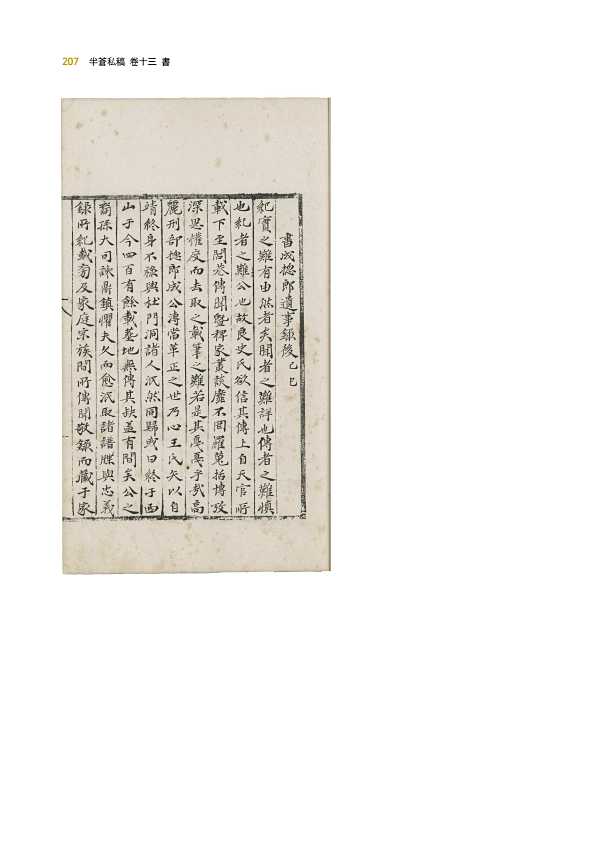 207 半蒼私稿 卷十三 書
書成摠郎遺事錄後 乙巳
紀實之難有由然者矣聞者之難詳也傳者之難愼
也紀者之難公也故良史氏欲信其傳上自天官所
載下至閭巷傳聞曁稗家叢談靡不罔羅蒐括博攷
深思權度而去取之載筆之難若是其戞戞乎哉高
麗刑部摠郎成公溥當革正之世乃心王氏矢以自
靖終身不祿與杜門洞諸人泯然同歸或曰終于西
山于今四百有餘載墓地無傳其缺盖有間矣公之
裔孫大司諫鼎鎭懼夫久而愈泯取諸譜牒與忠義
錄所紀載旁及家庭宗族間所傳聞敬錄而藏于家